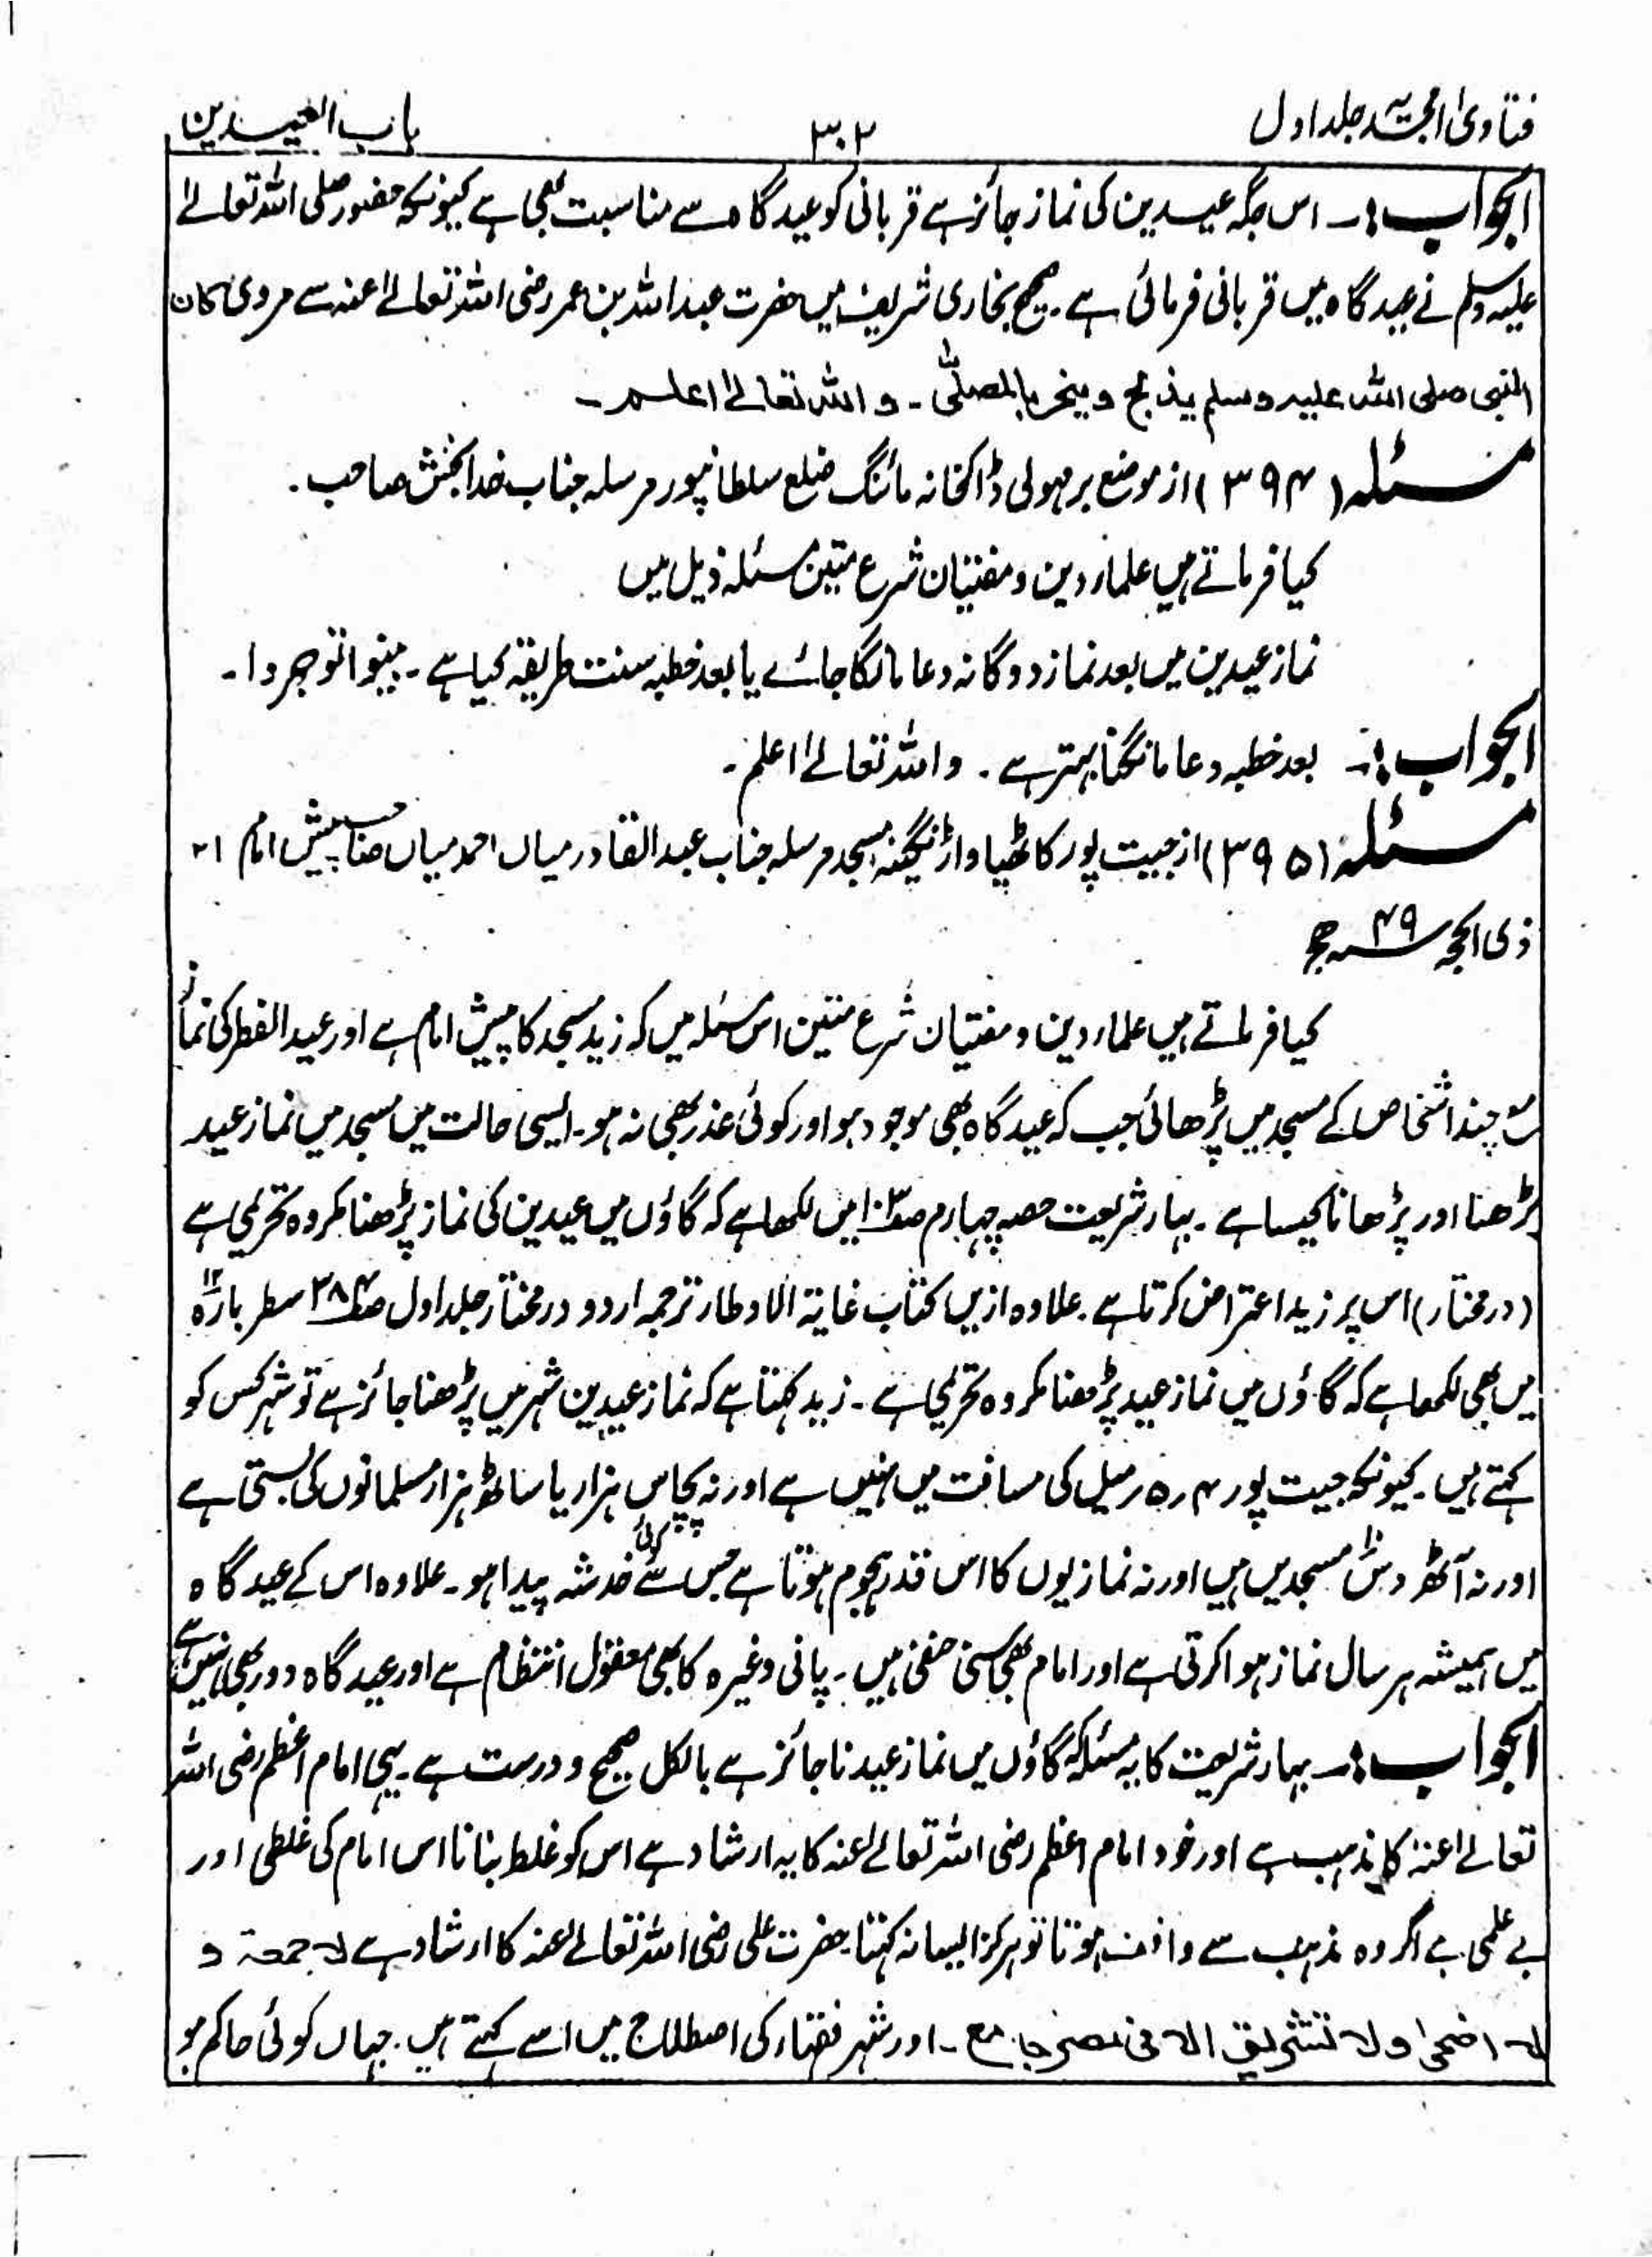 فتاویٰ امجدیہ جلد اول ۳۰۲ باب العیدین
الجواب :۔ اس جگہ عیدین کی نماز جائز ہے قربانی کو عید گاہ سے مناسبت بھی ہے کیونکہ حضور صلی اللہ تعالےٰ
علیہ وسلم نے عید گاہ میں قربانی فرمائی ہے۔ صحیح بخاری شریف میں حضرت عبداللہ بن عمر رضی اللہ تعالےٰ عنہ سے مروی کان
النبی صلی اللہ علیہ وسلم یذبح وینحر بالمصلّٰی۔ واللہ تعالےٰ اعلم۔
مسئلہ (۳۹۴) از موضع برمہولی ڈاکخانہ مائنگ ضلع سلطانپور مرسلہ جناب خدا بخش صاحب۔
کیا فرماتے ہیں علماء دین و مفتیان شرع متین مسئلہ ذیل میں
نماز عیدین میں بعد نماز دوگانہ دعا مانگا جائے یا بعد خطبہ سنت طریقہ کیا ہے۔ بینوا توجروا۔
الجواب :۔ بعد خطبہ دعا مانگنا بہتر ہے۔ واللہ تعالےٰ اعلم۔
مسئلہ (۳۹۵) از جیت پور کاٹھیاواڑ نگینہ مسجد مرسلہ جناب عبدالقادر میاں احمد میاں صاحب پیش امام ۲۱
ذی الحجہ ۴۹ھ
کیا فرماتے ہیں علماء دین و مفتیان شرع متین اس مسئلہ میں کہ زید مسجد کا پیش امام ہے اور عید الفطر کی نماز
مع چند اشخاص کے مسجد میں پڑھائی جب کہ عید گاہ بھی موجود ہو اور کوئی عذر بھی نہ ہو۔ ایسی حالت میں مسجد میں نماز عید
پڑھنا اور پڑھانا کیسا ہے۔ بہار شریعت حصہ چہارم میں لکھا ہے کہ گاؤں میں عیدین کی نماز پڑھنا مکروہ تحریمی ہے
(درمختار) اس پر زید اعتراض کرتا ہے۔ علاوہ ازیں کتاب غایۃ الاوطار ترجمہ اردو درمختار جلد اول ص۳۸۴ سطر بارہ ۱۲
میں بھی لکھا ہے کہ گاؤں میں نماز عید پڑھنا مکروہ تحریمی ہے۔ زید کہتا ہے کہ نماز عیدین شہر میں پڑھنا جائز ہے تو شہر کس کو
کہتے ہیں۔ کیونکہ جیت پور ۴،۵ میل کی مسافت میں نہیں ہے اور نہ پچاس ہزار یا ساٹھ ہزار مسلمانوں کی بستی ہے
اور نہ آٹھ دس مسجدیں ہیں اور نہ نمازیوں کا اس قدر ہجوم ہوتا ہے جس سے کوئی خدشہ پیدا ہو۔ علاوہ اس کے عید گاہ
میں ہمیشہ ہر سال نماز ہوا کرتی ہے اور امام بھی سنی حنفی ہیں۔ پانی وغیرہ کا بھی معقول انتظام ہے اور عید گاہ دور بھی نہیں ہے
الجواب :۔ بہار شریعت کا یہ مسئلہ کہ گاؤں میں نماز عید ناجائز ہے بالکل صحیح و درست ہے۔ یہی امام اعظم رضی اللہ
تعالےٰ عنہ کا مذہب ہے اور خود امام اعظم رضی اللہ تعالےٰ عنہ کا یہ ارشاد ہے اس کو غلط بتانا اس امام کی غلطی اور
بے علمی ہے اگر وہ مذہب سے واقف ہوتا تو ہرگز ایسا نہ کہتا۔ حضرت علی رضی اللہ تعالےٰ عنہ کا ارشاد ہے لا جمعۃ و
لا اضحی ولا تشریق الا فی مصر جامع۔ اور شہر فقہاء کی اصطلاح میں اسے کہتے ہیں۔ جہاں کوئی حاکم ہو